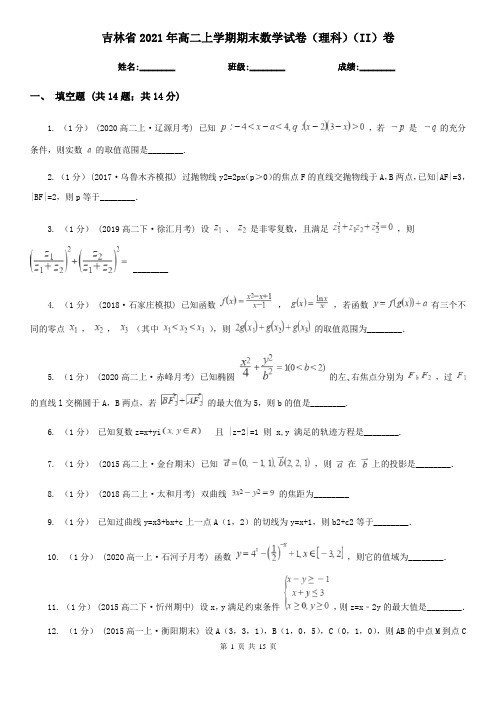 吉林省2021年高二上学期期末数学试卷(理科)(II)卷
姓名:________ 班级:________ 成绩:________
一、 填空题 (共14题；共14分)
1. (1分) (2020高二上·辽源月考) 已知 p:-4<x-a<4,q:(x-2)(3-x)>0 ,若 ¬p 是 ¬q 的充分
条件,则实数 a 的取值范围是________.
2.(1分)(2017·乌鲁木齐模拟) 过抛物线y2=2px(p>0)的焦点F的直线交抛物线于A,B两点,已知|AF|=3,
|BF|=2,则p等于________.
3. (1分) (2019高二下·徐汇月考) 设 z₁ 、 z₂ 是非零复数,且满足 z₁²+z₁z₂+z₂²=0 ,则
(z₁/(z₁+z₂))²+(z₂/(z₁+z₂))²= ________
4. (1分) (2018·石家庄模拟) 已知函数 f(x)=(x²-x+1)/(x-1) , g(x)=lnx/x ,若函数 y=f(g(x))+a 有三个不
同的零点 x₁ , x₂ , x₃ (其中 x₁<x₂<x₃ ),则 2g(x₁)+g(x₂)+g(x₃) 的取值范围为________.
5. (1分) (2020高二上·赤峰月考) 已知椭圆 x²/4+y²/b²=1(0<b<2) 的左､右焦点分别为 F₁,F₂ ,过 F₁
的直线l交椭圆于A,B两点,若 |BF₂+AF₂| 的最大值为5,则b的值是________.
6. (1分) 已知复数z=x+yi (x,y∈R) 且 |z-2|=1 则 x,y 满足的轨迹方程是________.
7. (1分) (2015高二上·金台期末) 已知 a=(0,-1,1),b(2,2,1) ,则 a 在 b 上的投影是________.
8. (1分) (2018高二上·太和月考) 双曲线 3x²-y²=9 的焦距为________
9. (1分) 已知过曲线y=x3+bx+c上一点A(1,2)的切线为y=x+1,则b2+c2等于________.
10. (1分) (2020高一上·石河子月考) 函数 y=4ˣ-(1/2)⁻ˣ+1,x∈[-3,2] ,则它的值域为________.
11. (1分)(2015高二下·忻州期中) 设x,y满足约束条件 {x-y≥-1 x+y≤3 x≥0,y≥0 ,则z=x﹣2y的最大值是________.
12. (1分) (2015高一上·衡阳期末) 设A(3,3,1),B(1,0,5),C(0,1,0),则AB的中点M到点C
第 1 页 共 15 页